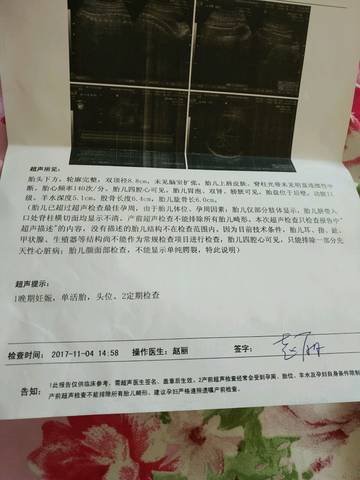 超声所见：
胎头下方，轮廓完整，双顶径8.8cm，未见脑室扩张，胎儿上唇皮肤、脊柱光带未见明显连续性中
断，胎心频率140次/分，胎儿四腔心可见，胎儿胃泡、双肾、膀胱可见，胎盘位于后壁，功能II
级，羊水深度5.1cm，股骨长度6.4cm，胎儿肱骨长6.0cm。
（胎儿已超过超声检查最佳孕周，由于胎儿体位、孕周因素：胎儿仅部分肢体显示，胎儿脐带入
口处脊柱横切面均显示不清。产前超声检查不能排除所有胎儿畸形。本次超声检查只检查报告中"
超声描述"的内容，没有描述的胎儿结构不在检查范围内，因为目前技术条件，胎儿耳、指、趾、
甲状腺、生殖器等结构尚不能作为常规检查项目进行检查，胎儿四腔心可见，只能排除一部分先
天性心脏病；胎儿颜面部检查，不能显示单纯腭裂，特此说明）
超声提示：
1晚期妊娠，单活胎，头位、2定期检查
检查时间：2017-11-04 14:58 操作医生：赵丽 签字：
告知：1此报告仅供临床参考，需超声医生签名、盖章后生效。2产前超声检查经常会受到孕周、胎位、羊水及孕妇自身条件限制
产前超声检查不能排除所有胎儿畸形。建议孕妇严格遵照遗嘱产前检查。